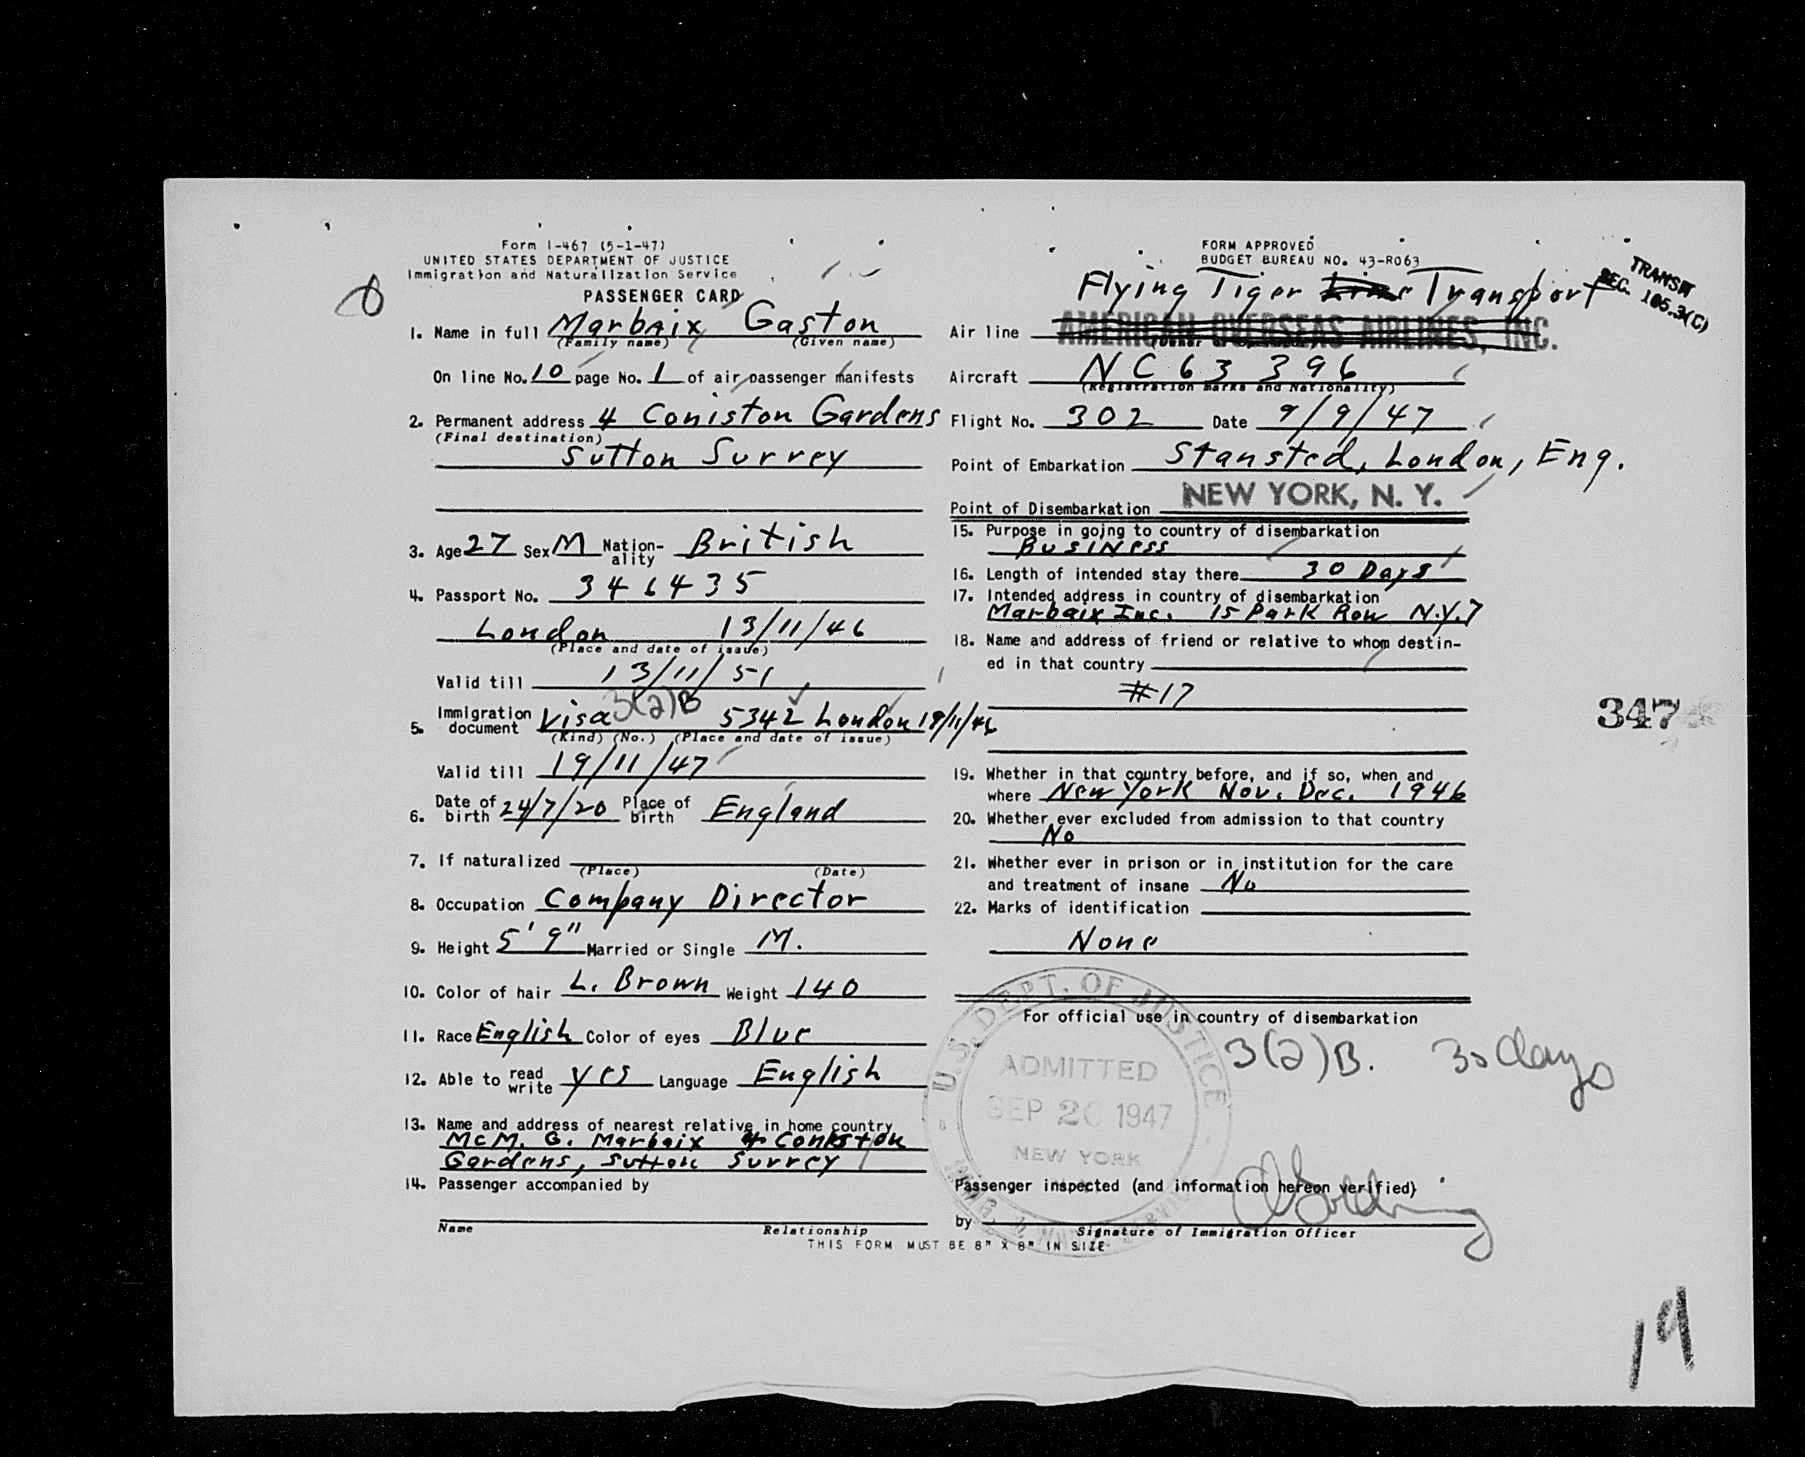 Form I-467 (5-1-47)
UNITED STATES DEPARTMENT OF JUSTICE
Immigration and Naturalization Service
PASSENGER CARD
1. Name in full Marbaix Gaston
(Family name) (Given name)
On line No. 10 page No. 1 of air passenger manifests
2. Permanent address 4 Coniston Gardens
(Final destination)
Sutton Surrey
3. Age 27 Sex M Nation-ality British
4. Passport No. 346435
London 13/11/46
(Place and date of issue)
Valid till 13/11/51
3(2)B
5. Immigration document Visa 5342 London 19/11/46
(Kind) (No.) (Place and date of issue)
Valid till 19/11/47
6. Date of birth 24/7/20 Place of birth England
7. If naturalized
(Place) (Date)
8. Occupation Company Director
9. Height 5' 9" Married or Single M.
10. Color of hair L. Brown Weight 140
11. Race English Color of eyes Blue
12. Able to read write yes Language English
13. Name and address of nearest relative in home country
McM. G. Marbaix 4 Coniston
Gardens, Sutton Surrey
14. Passenger accompanied by
Name Relationship
THIS FORM MUST BE 8" X 8" IN SIZE
FORM APPROVED
BUDGET BUREAU NO. 43-R063
TRANSIT
SEC. 105.3(C)
Flying Tiger Line Transport
Air line AMERICAN OVERSEAS AIRLINES, INC.
Aircraft NC63396
(Registration marks and Nationality)
Flight No. 302 Date 9/9/47
Point of Embarkation Stansted, London, Eng.
Point of Disembarkation NEW YORK, N. Y.
15. Purpose in going to country of disembarkation
Business
16. Length of intended stay there 30 Days
17. Intended address in country of disembarkation
Marbaix Inc. 15 Park Row N.Y.7
18. Name and address of friend or relative to whom destin-
ed in that country
#17
347
19. Whether in that country before, and if so, when and
where New York Nov. Dec. 1946
20. Whether ever excluded from admission to that country
No
21. Whether ever in prison or in institution for the care
and treatment of insane No
22. Marks of identification
None
For official use in country of disembarkation
3(2)B. 30 days
U.S. DEPT. OF JUSTICE
ADMITTED
SEP 20 1947
NEW YORK
Passenger inspected (and information hereon verified)
by
Signature of Immigration Officer
19